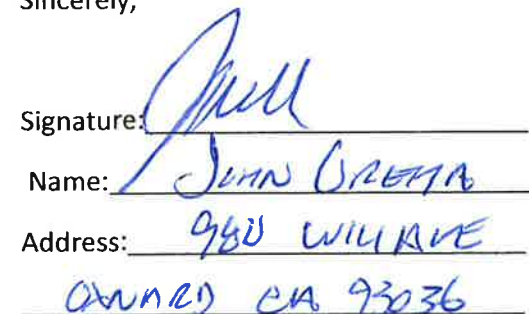 Sincerely,
Signature:
Name: JOHN
Address: 980 WILL AVE
OXNARD CA 93036